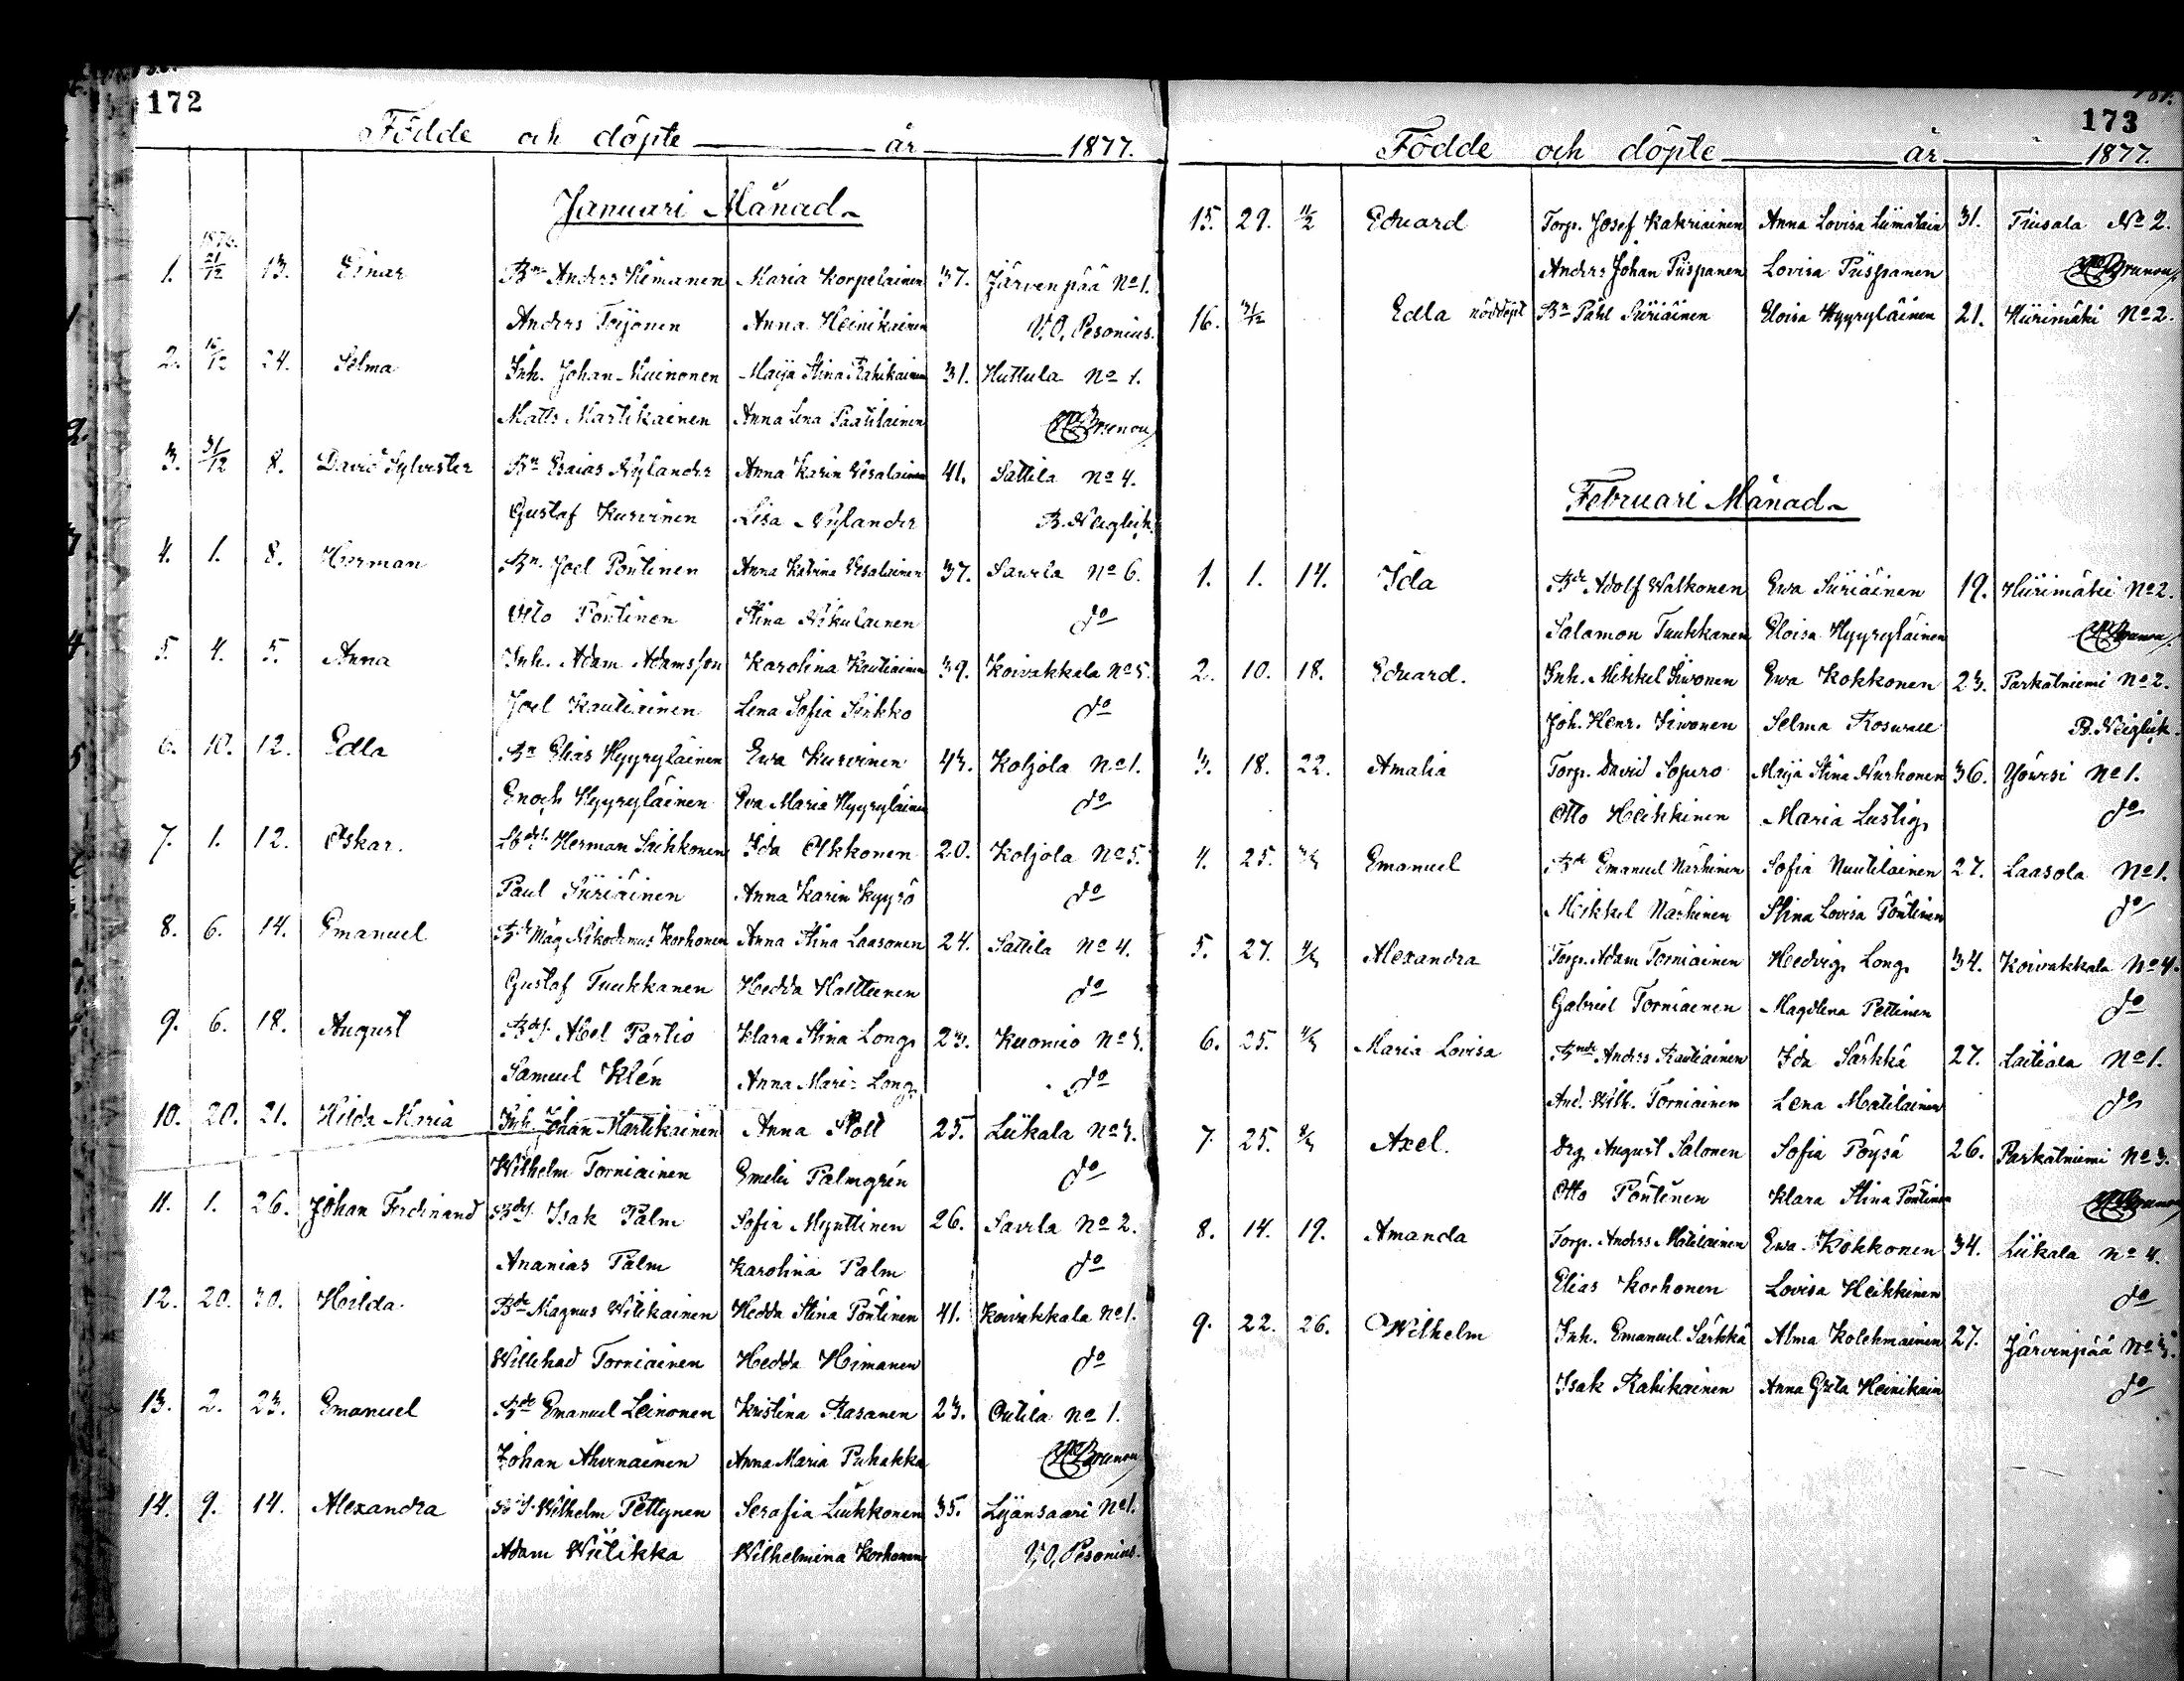 172
Födde och döpte år 1877.
Januari Månad
1876.
1. 21/12 13. Einar Bn Anders Himanen Maria Korpelainen 37. Järvenpää No 1.
Anders Toijonen Anna Heinikainen V. O. Pesonius.
2. 24. Selma Inh. Johan Muinonen Maija Stina Rahikainen 31. Huttula No 1.
Matts Martikainen Anna Lena Paatilainen Brunou
3. 31/12 8. David Sylvester Bn Esaias Nylander Anna Karin Vesalainen 41. Sattila No 4.
Gustaf Kurvinen Lisa Nylander B. Neiglick.
4. 1. 8. Herman Bn Joel Pöntinen Anna Katrina Vesalainen 37. Savela No 6.
Otto Pöntinen Stina Nikulainen do
5. 4. 5. Anna Inh. Adam Adamsson Karolina Kautiainen 39. Koivakkala No 5.
Joel Kautiainen Lena Sofia Sirkko do
6. 10. 12. Edla Bn Elias Hyyryläinen Ewa Kurvinen 43. Koljola No 1.
Enoch Hyyryläinen Eva Maria Hyyryläinen do
7. 1. 12. Oskar. Herman Seikkonen Ida Olkkonen 20. Koljola No 5.
Paul Siiriäinen Anna Karin Kyyrö do
8. 6. 14. Emanuel Bde Måg Nikodemus Korhonen Anna Stina Laasonen 24. Sattila No 4.
Gustaf Tuukkanen Hedda Halttunen do
9. 6. 18. August Bds. Abel Partio Klara Stina Long 23. Kuomio No 3.
Samuel Klén Anna Maria Long do
10. 20. 21. Hilda Maria Inh. Johan Martikainen Anna Stoll 25. Liikala No 3.
Wilhelm Torniainen Emelie Palmgrén do
11. 1. 26. Johan Ferdinand Bds. Isak Palm Sofia Mynttinen 26. Savela No 2.
Ananias Palm Karolina Palm do
12. 20. 30. Hilda Bde Magnus Witikainen Hedda Stina Pöntinen 41. Koivakkala No 1.
Willehad Torniainen Hedda Himanen do
13. 2. 23. Emanuel Bde Emanuel Leinonen Kristina Rasanen 23. Outila No 1.
Johan Ahvenainen Anna Maria Puhakka Brunou
14. 9. 14. Alexandra Wilhelm Pettynen Serafia Liukkonen 35. Lyänsaari No 1.
Adam Wiilikka Wilhelmina Korhonen V. O. Pesonius.
173
Födde och döpte år 1877.
15. 29. 11/2 Eduard Torp. Josef Kakriainen Anna Lovisa Liimatain 31. Tiusala No 2.
Anders Johan Piispanen Lovisa Piispanen Brunou
16. 31/12 Edla nöddöpt Bn Påhl Siiriäinen Eloisa Hyyryläinen 21. Hiirimäki No 2.
Februari Månad
1. 1. 14. Ida Bde Adolf Walkonen Ewa Siiriäinen 19. Hiirimäki No 2.
Salamon Tuukkanen Eloisa Hyyryläinen Brunou
2. 10. 18. Eduard. Inh. Mikkel Siwonen Ewa Kokkonen 23. Parkatniemi No 2.
Joh. Henr. Siwonen Selma Roswall B. Neiglick.
3. 18. 22. Amalia Torp. David Sopuro Maija Stina Nurhonen 36. Yöwesi No 1.
Otto Heikkinen Maria Lustig do
4. 25. Emanuel Bde Emanuel Närhinen Sofia Nuutilainen 27. Laasola No 1.
Mikkel Närhinen Stina Lovisa Pöntinen do
5. 27. 4/3 Alexandra Torp. Adam Torniainen Hedvig Long 34. Koivakkala No 4.
Gabriel Torniainen Magdlena Pettinen do
6. 25. 4/3 Maria Lovisa Anders Rautiainen Ida Särkkä 27. Laitiala No 1.
And. Wilh. Torniainen Lena Matilainen do
7. 25. Axel. Drg August Salonen Sofia Pöysä 26. Parkatniemi No 3.
Otto Pöntinen Klara Stina Pöntinen Brunou
8. 14. 19. Amanda Torp. Anders Matilainen Ewa Kokkonen 34. Liikala No 4.
Elias Korhonen Lovisa Heikkinen do
9. 22. 26. Wilhelm Inh. Emanuel Särkkä Alma Kolehmainen 27. Järvenpää No 3.
Isak Rahikainen Anna Greta Heinikain do